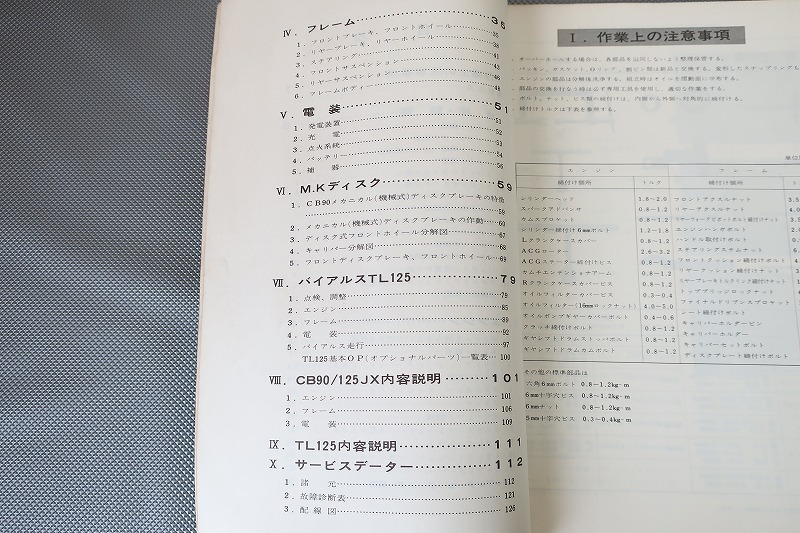 Ⅳ. フレーム 35
1. フロントブレーキ、フロントホイール 35
2. リヤーブレーキ、リヤーホイール 38
3. ステアリング 41
4. フロントサスペンション 43
5. リヤーサスペンション 46
6. フレームボディ 48
Ⅴ. 電 装 51
1. 発電装置 51
2. 充 電 52
3. 点火系統 53
4. バッテリー 54
5. 補 器 56
Ⅵ. M.Kディスク 59
1. CB90メカニカル(機械式)ディスクブレーキの特徴
59
2. メカニカル(機械式)ディスクブレーキの作動 60
3. ディスク式フロントホイール分解図 67
4. キャリパー分解図 68
5. フロントディスクブレーキ、フロントホイール 69
Ⅶ. バイアルスTL125 79
1. 点検、調整 79
2. エンジン 85
3. フレーム 89
4. 電 装 92
5. バイアルス走行 97
TL125基本OP(オプショナルパーツ)一覧表 100
Ⅷ. CB90/125JX内容説明 101
1. エンジン 101
2. フレーム 106
3. 電 装 109
Ⅸ. TL125内容説明 111
Ⅹ. サービスデーター 112
1. 諸 元 112
2. 故障診断表 121
3. 配線図 126
Ⅰ. 作業上の注意事項
オーバーホールする場合は、各部品を混同しないよう整理保管する。
パッキン、ガスケット、Oリング、割ピン類は新品と交換する。変形したスナップリングも
エンジンの部品は分解後洗浄する。組立時はオイルを摺動面に塗布する。
部品の交換を行なう時は必ず専用工具を使用し、適切な作業をする。
ボルト、ナット、ビス類の締付けは、内側から外側へ対角的に締付ける。
締付けトルクは下表を参照する。
単位
エンジン フレーム
締付け個所 トルク 締付け個所
シリンダーヘッド 1.8~2.0 フロントアクスルナット 3.5
スパークアドバンサ 0.8~1.2 リヤーアクスルナット 4.0
カムスプロケット 0.8~1.2 リヤーフォークピボットボルト締付けナット 3.
シリンダー締付け6mmボルト 1.2~1.8 エンジンハンガボルト 2.0
Lクランクケースカバー 0.8~1.2 ハンドル取付けボルト 0.
ACGローター 2.6~3.2 ステアリングステムナット 6.
ACGステーター締付けビス 0.8~1.2 フロントクッション締付けボルト 4.
カムチエンテンショナアーム 0.8~1.2 リヤークッション締付けナット 3.
Rクランクケースカバービス 0.8~1.2 リヤーブレーキトルクリンク締付けボルト
オイルフィルターカバービス 0.3~0.4 トップブリッジロックナット
オイルフィルター(16mmロックナット) 4.0~5.0 ファイナルドリブンスプロケット
オイルポンプギヤーカバーボルト 0.4~0.6 シート締付けボルト
クラッチ締付けボルト 0.8~1.2 キャリパーホルダーピン
ギヤシフトドラムストッパボルト 0.8~1.2 キャリパーホルダー
ギヤシフトドラムカムボルト 0.8~1.2 キャリパーセットボルト
ディスクプレート締付けボルト
その他の標準部品は
六角6mmボルト 0.8~1.2kg-m
6mm十字穴ビス 0.8~1.2kg-m
6mmナット 0.8~1.2kg-m
5mm十字穴ビス 0.3~0.4kg-m